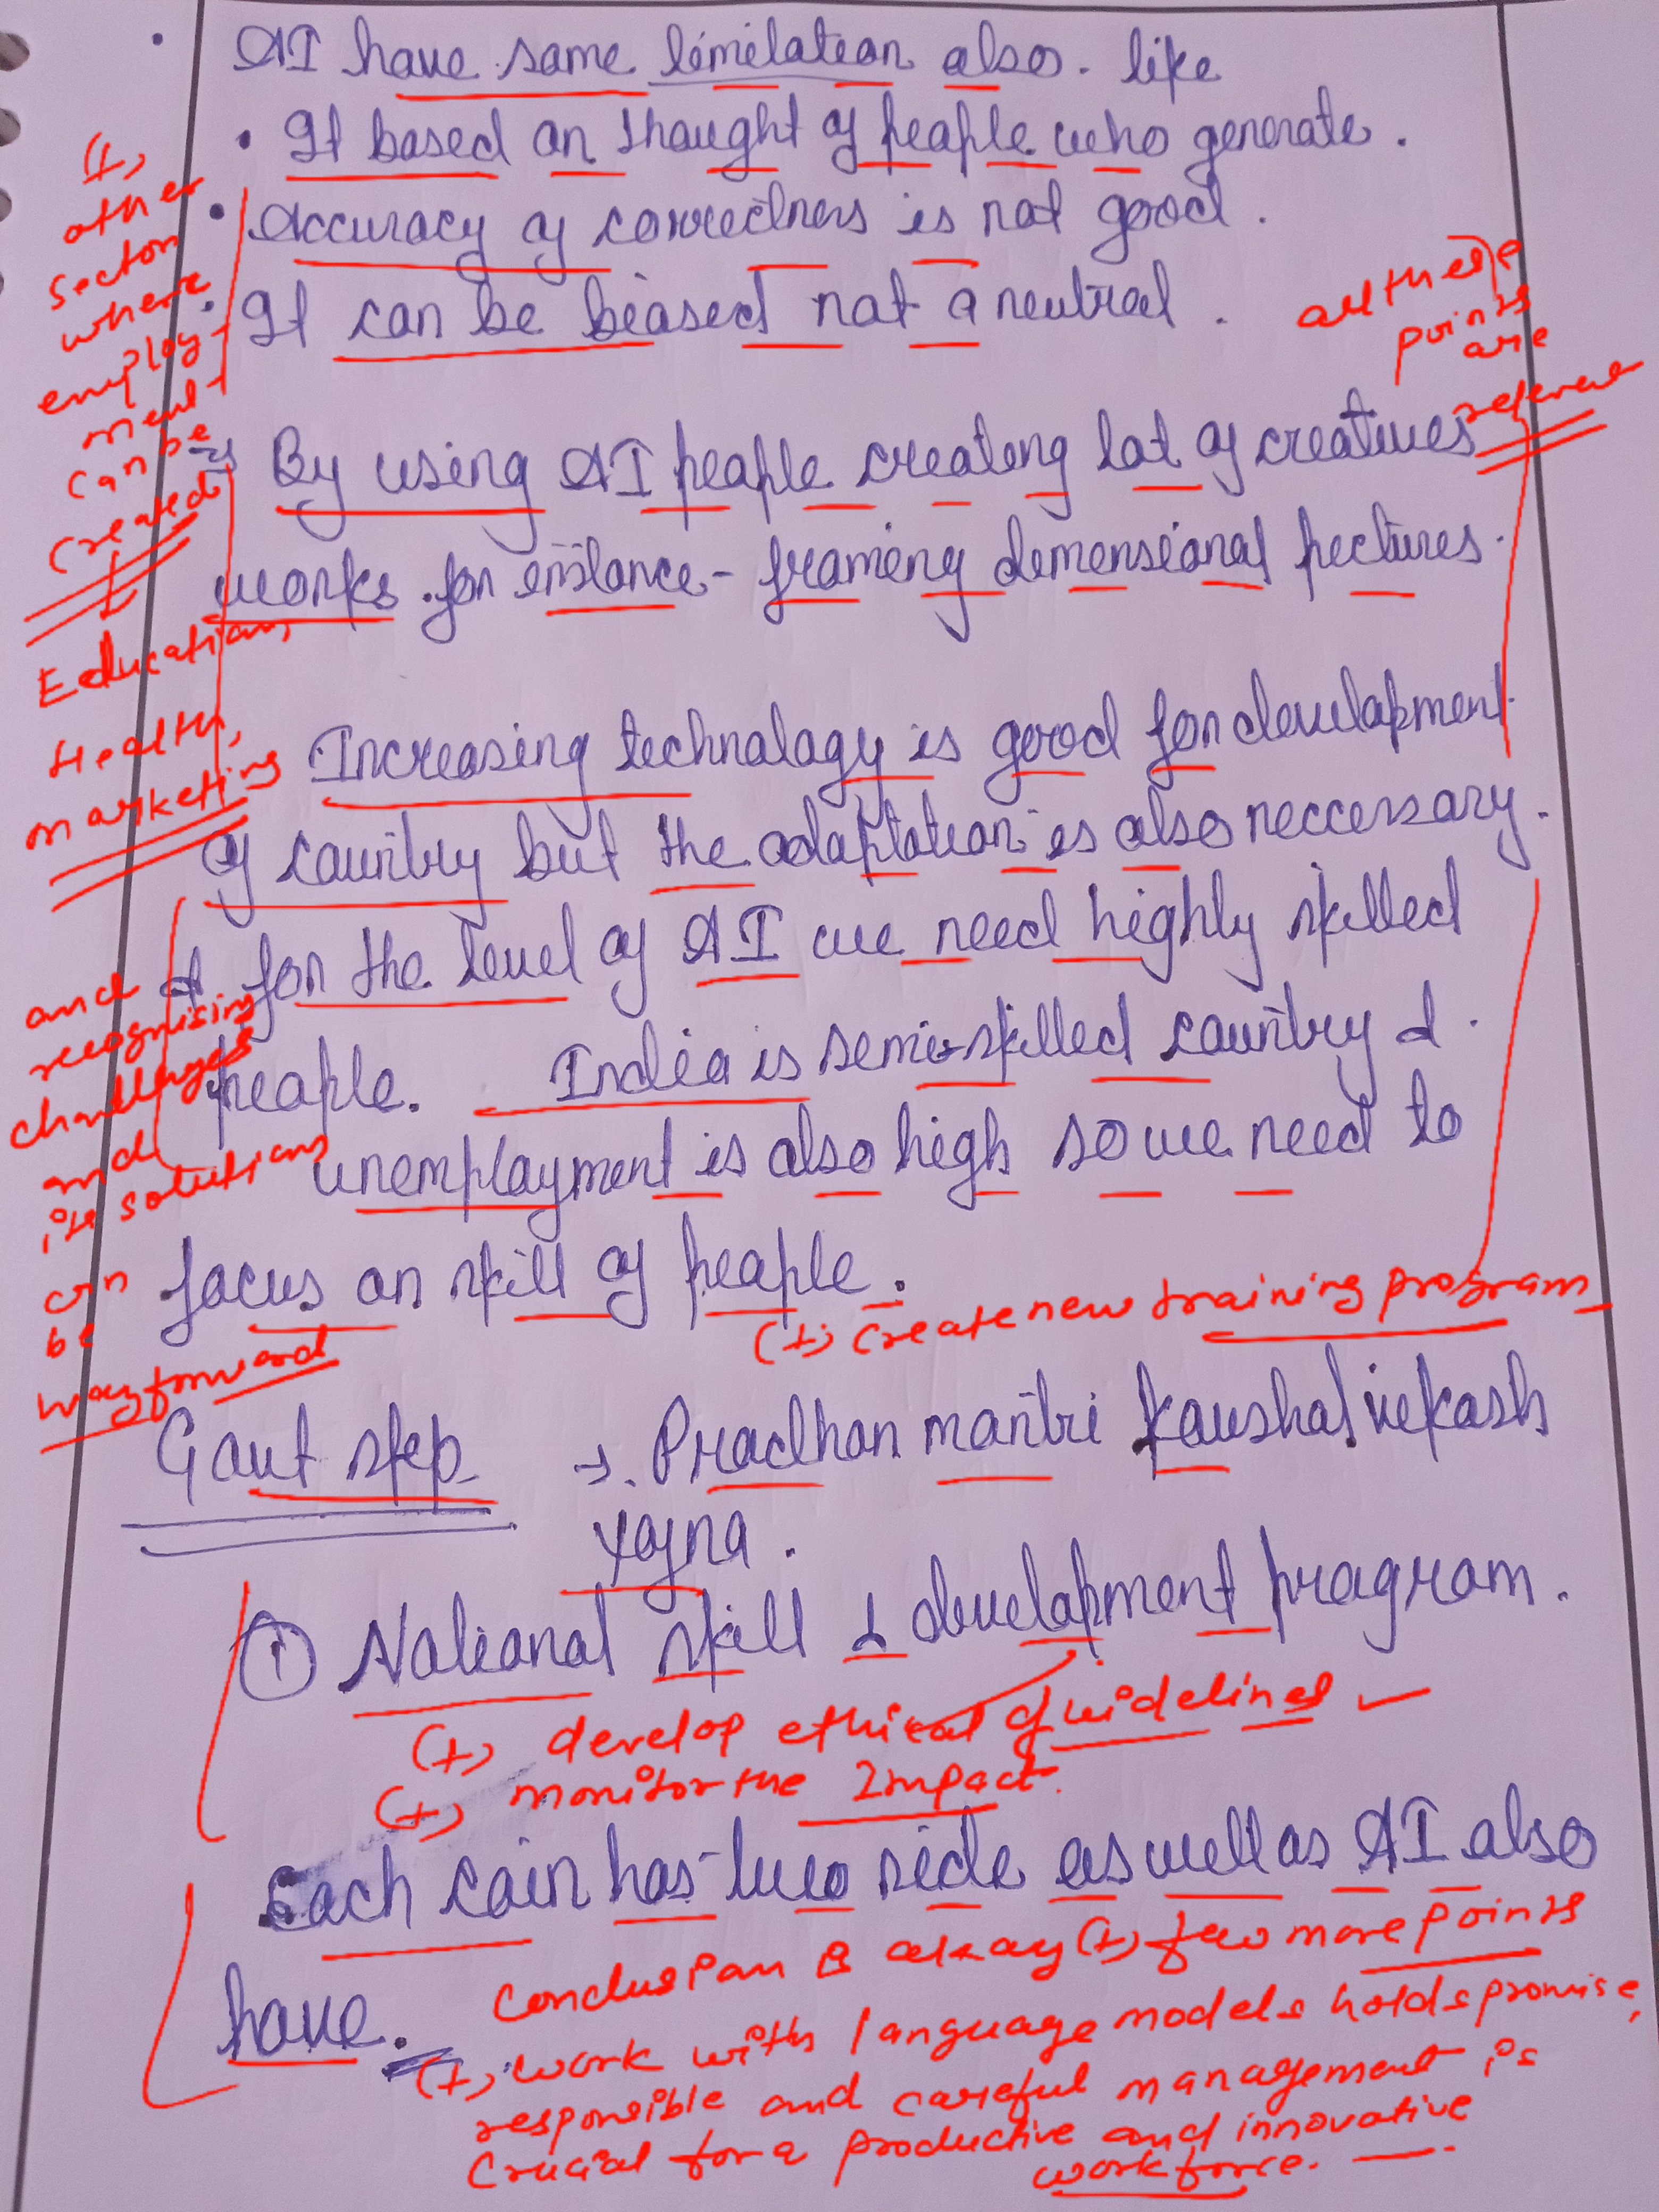 AI have some limitation also. like
• It based on thought of people who generate.
• Accuracy of correctness is not good.
• It can be biased not a neutral.
(+)
other
sector
where
employ-
ment
can be
created
Education,
Health,
marketing
all these
points
are
relevent
By using AI people creating lot of creatives
works. for instance - framing dimensional pictures.
Increasing technology is good for development
of country but the adaptation is also neccessary.
& for the level of AI we need highly skilled
people. India is semi-skilled country &
unemployment is also high so we need to
focus on skill of people.
and
recognising
challenges
and
its solutions
can
be
way forward
(+) create new training program
Govt step → Pradhan mantri kaushal vikash
Yojna.
① National skill & development program.
(+) develop ethical guidelines
(+) monitor the Impact.
Each coin has two side as well as AI also
have.
Conclusion is okay (+) few more points
(+) work with language models holds promise,
responsible and careful management is
crucial for a productive and innovative
workforce.